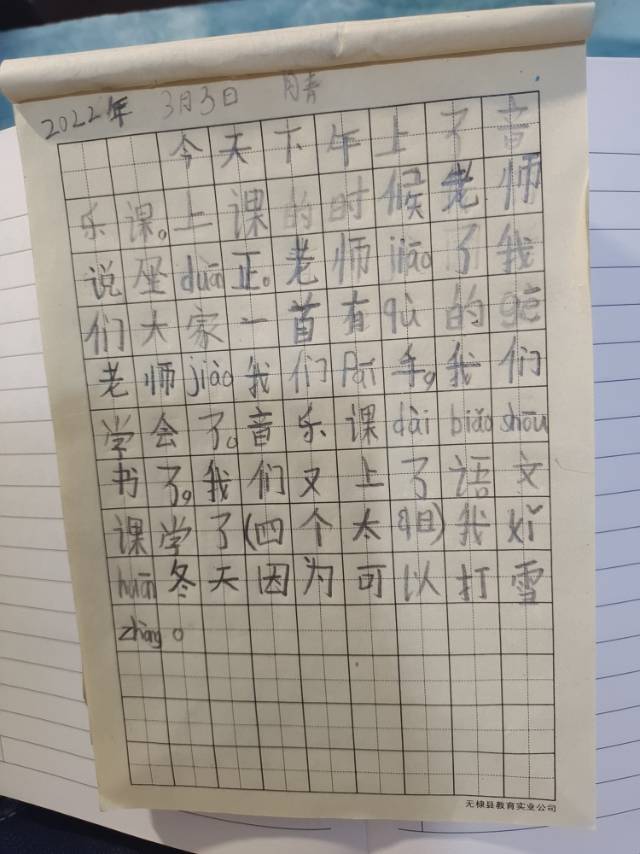 2022年 3月3日 晴
今天下午上了音
乐课。上课的时候老师
说坐duān正。老师jiāo了我
们大家一首有qù的gē
老师jiāo我们Pāi手。我们
学会了。音乐课dài biǎo shōu
书了。我们又上了语文
课学了(四个太阳)我xǐ
huān冬天因为可以打雪
zhàng。
无棣县教育实业公司